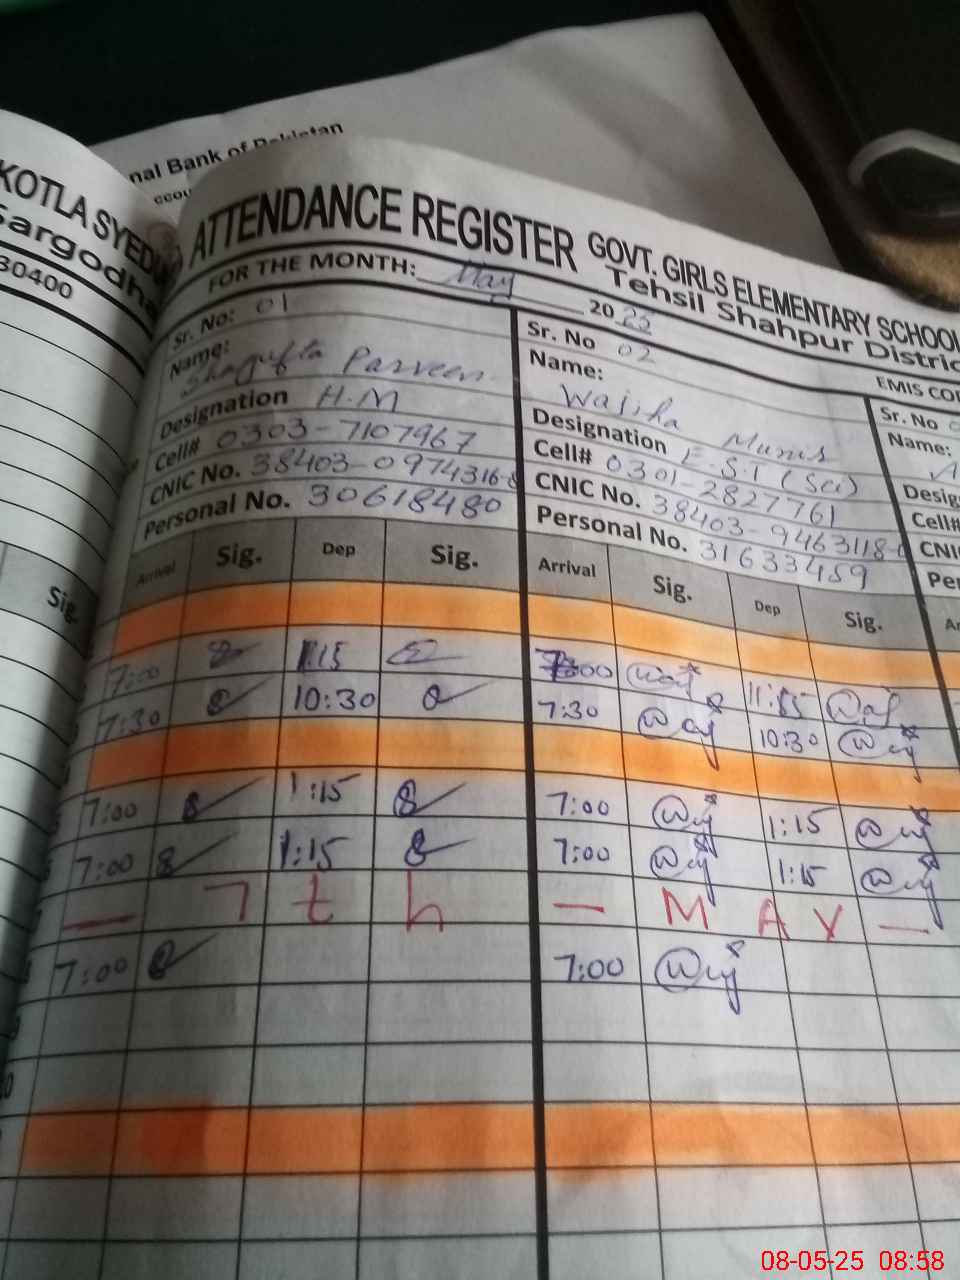 nal Bank of Pakistan
ccou
KOTLA SYED
Sargodha
30400
Sig.
ATTENDANCE REGISTER GOVT. GIRLS ELEMENTARY SCHOOL
FOR THE MONTH: May 2025 Tehsil Shahpur Distric
EMIS COD
Sr. No: 01 Sr. No 02 Sr. No
Name: Shagufta Parveen Name: Wajiha Munis Name: A
Designation H.M Designation E.S.T (Sci) Desig
Cell# 0303-7107967 Cell# 0301-2827761 Cell#
CNIC No. 38403-0974316-8 CNIC No. 38403-9463118- CNI
Personal No. 30618480 Personal No. 31633459 Per
Arrival Sig. Dep Sig. Arrival Sig. Dep Sig. Ar
7:00 1:15 7:00
7:30 10:30 7:30 10:30
7:00 1:15 7:00 1:15
7:00 1:15 7:00 1:15
— 7 t h — M A Y —
7:00 7:00
08-05-25 08:58